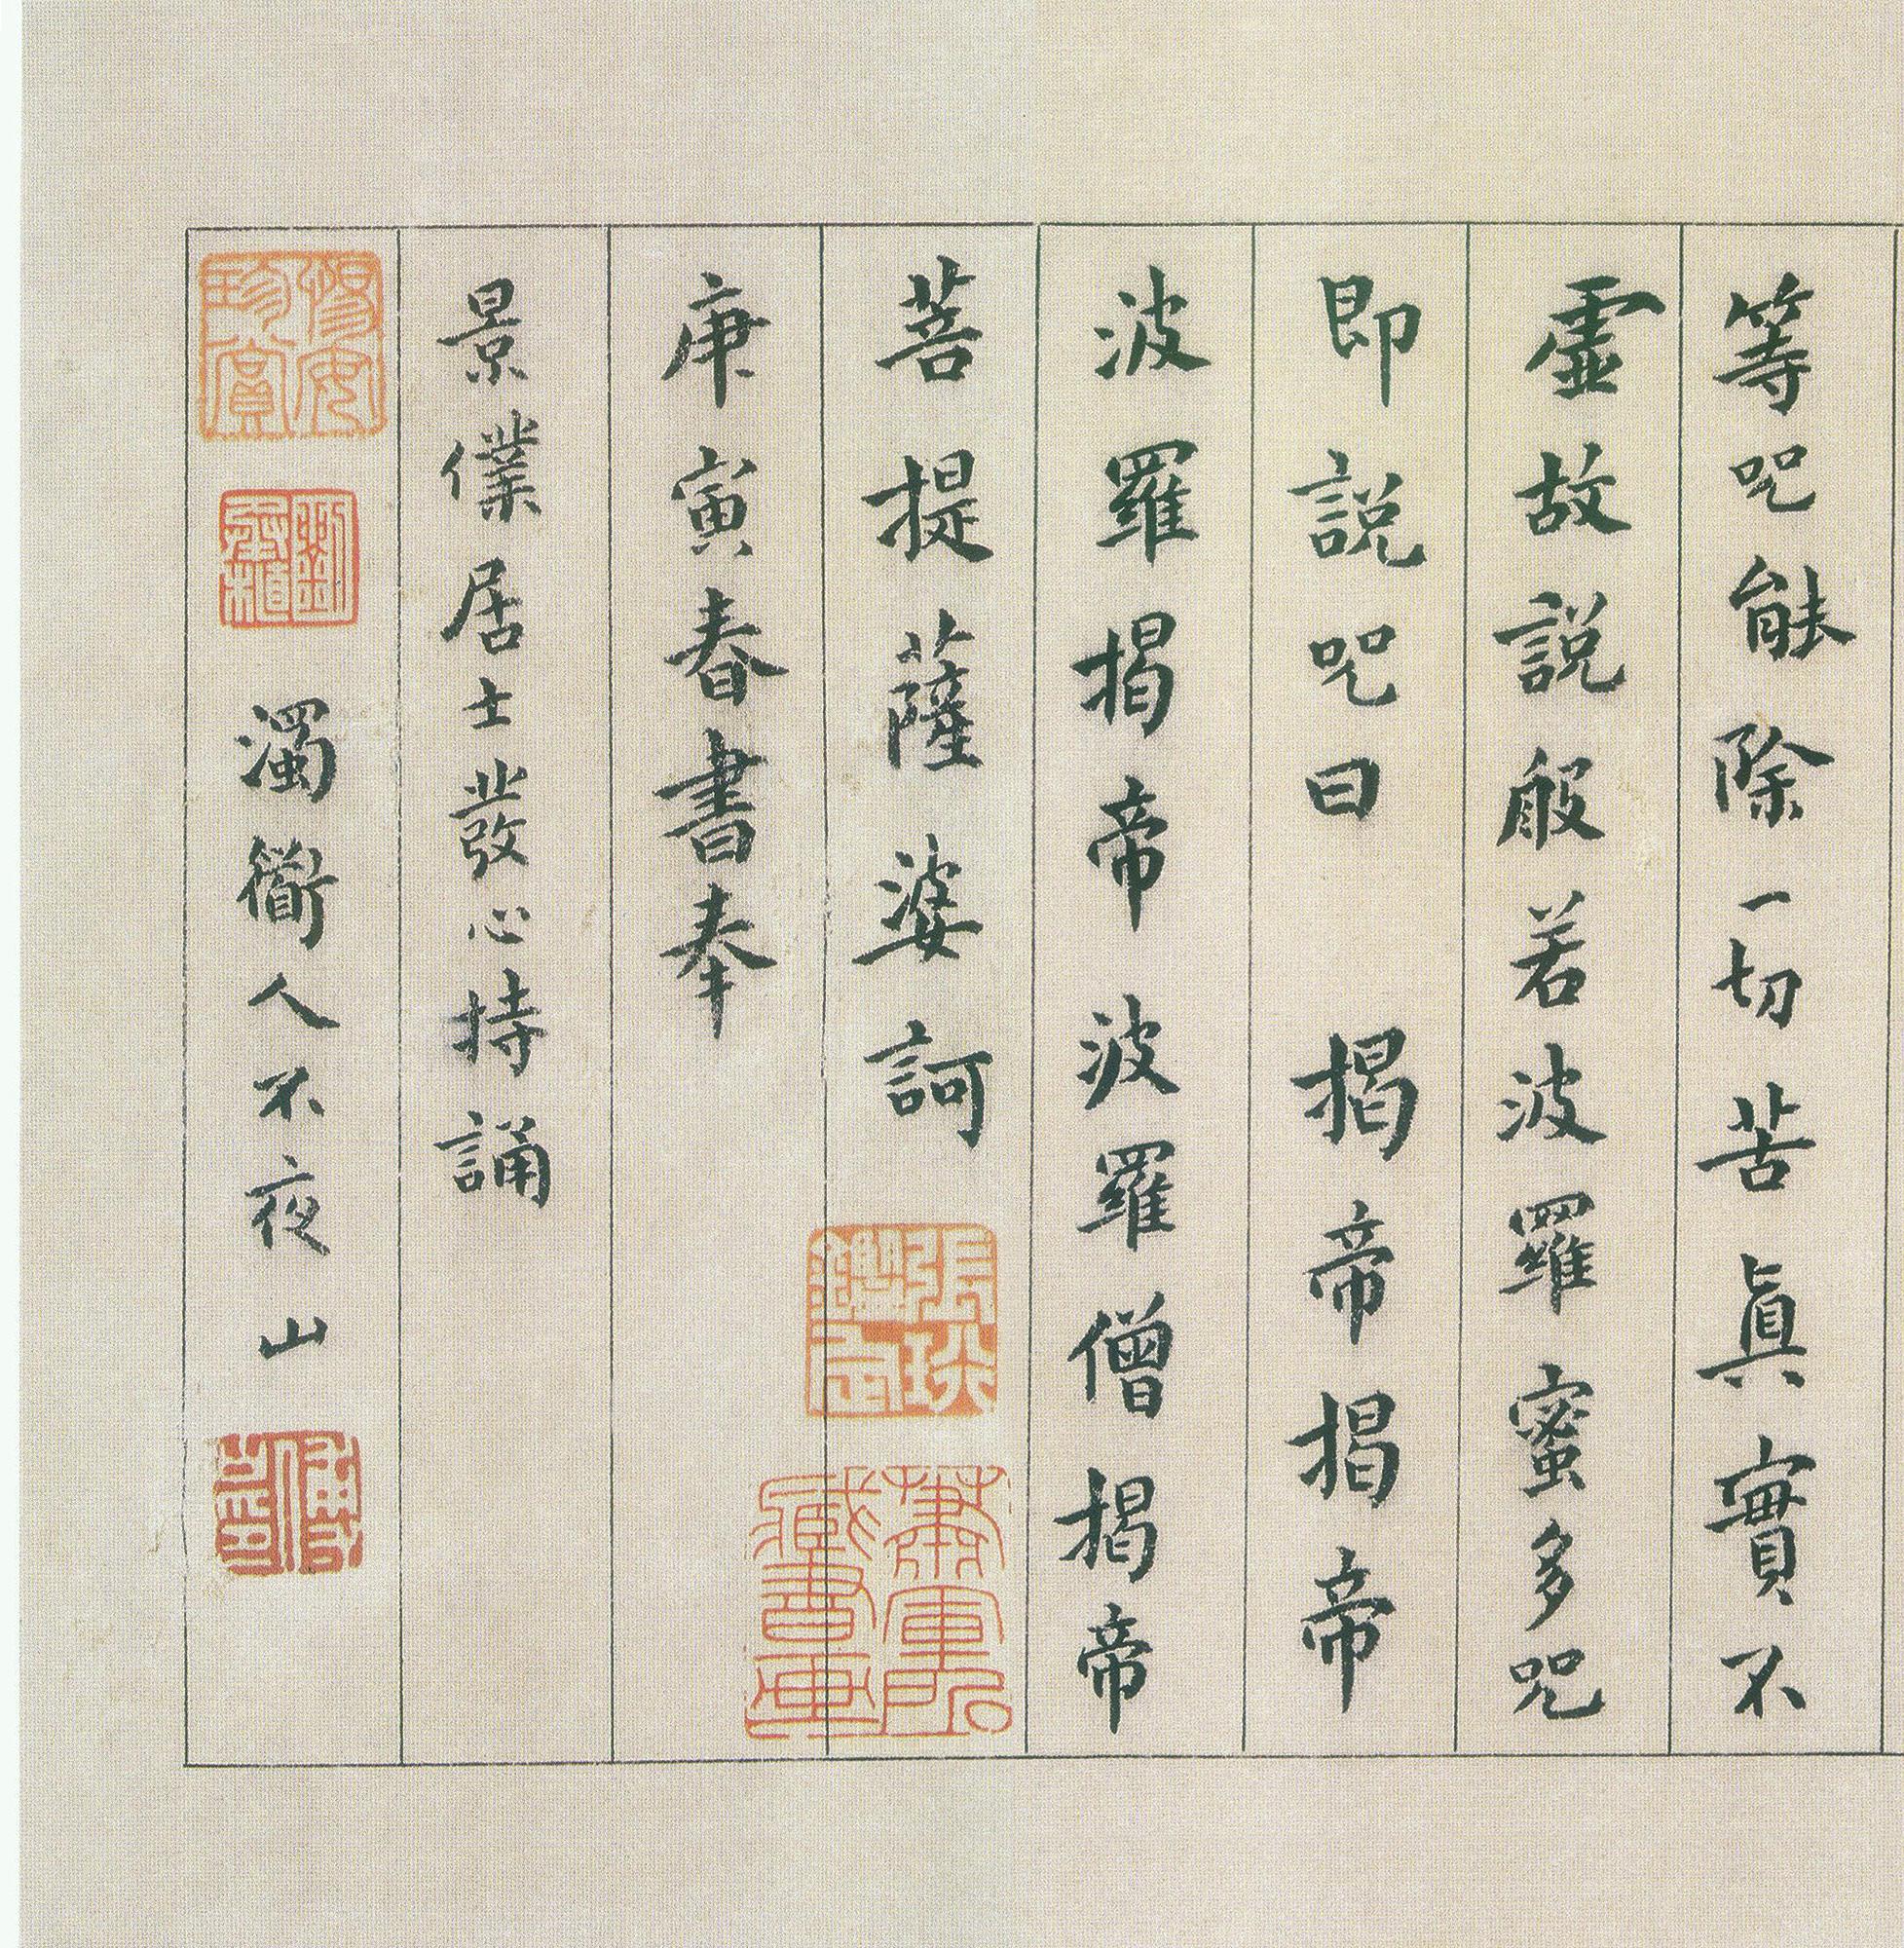 等咒能除一切苦眞實不
虛故説般若波羅蜜多咒
即説咒曰　揭帝揭帝
波羅揭帝波羅僧揭帝
菩提薩婆訶
庚寅春書奉
景僕居士發心持誦
濁衜人不夜山